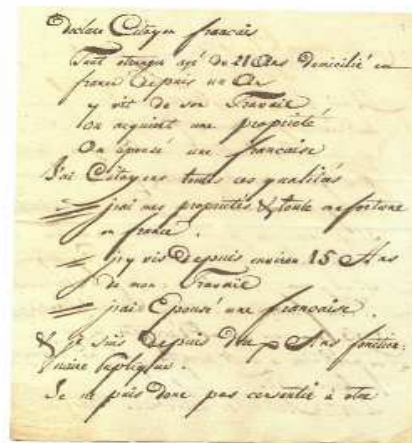 declare Citoyen francais
Tout etranger agé de 21 Ans domicilié en
france depuis un An
y vit de son Travail
ou acquiert une propriété
Ou épouse une francaise
J'ai Citoyens toutes ces qualités
j'ai mes propriétés & toute ma fortune
en france.
j'y vis depuis environ 15 Ans
de mon Travail
j'ai Epousé une francaise.
& je suis depuis Ans fonction-
naire
Je ne puis donc pas consentir à etre